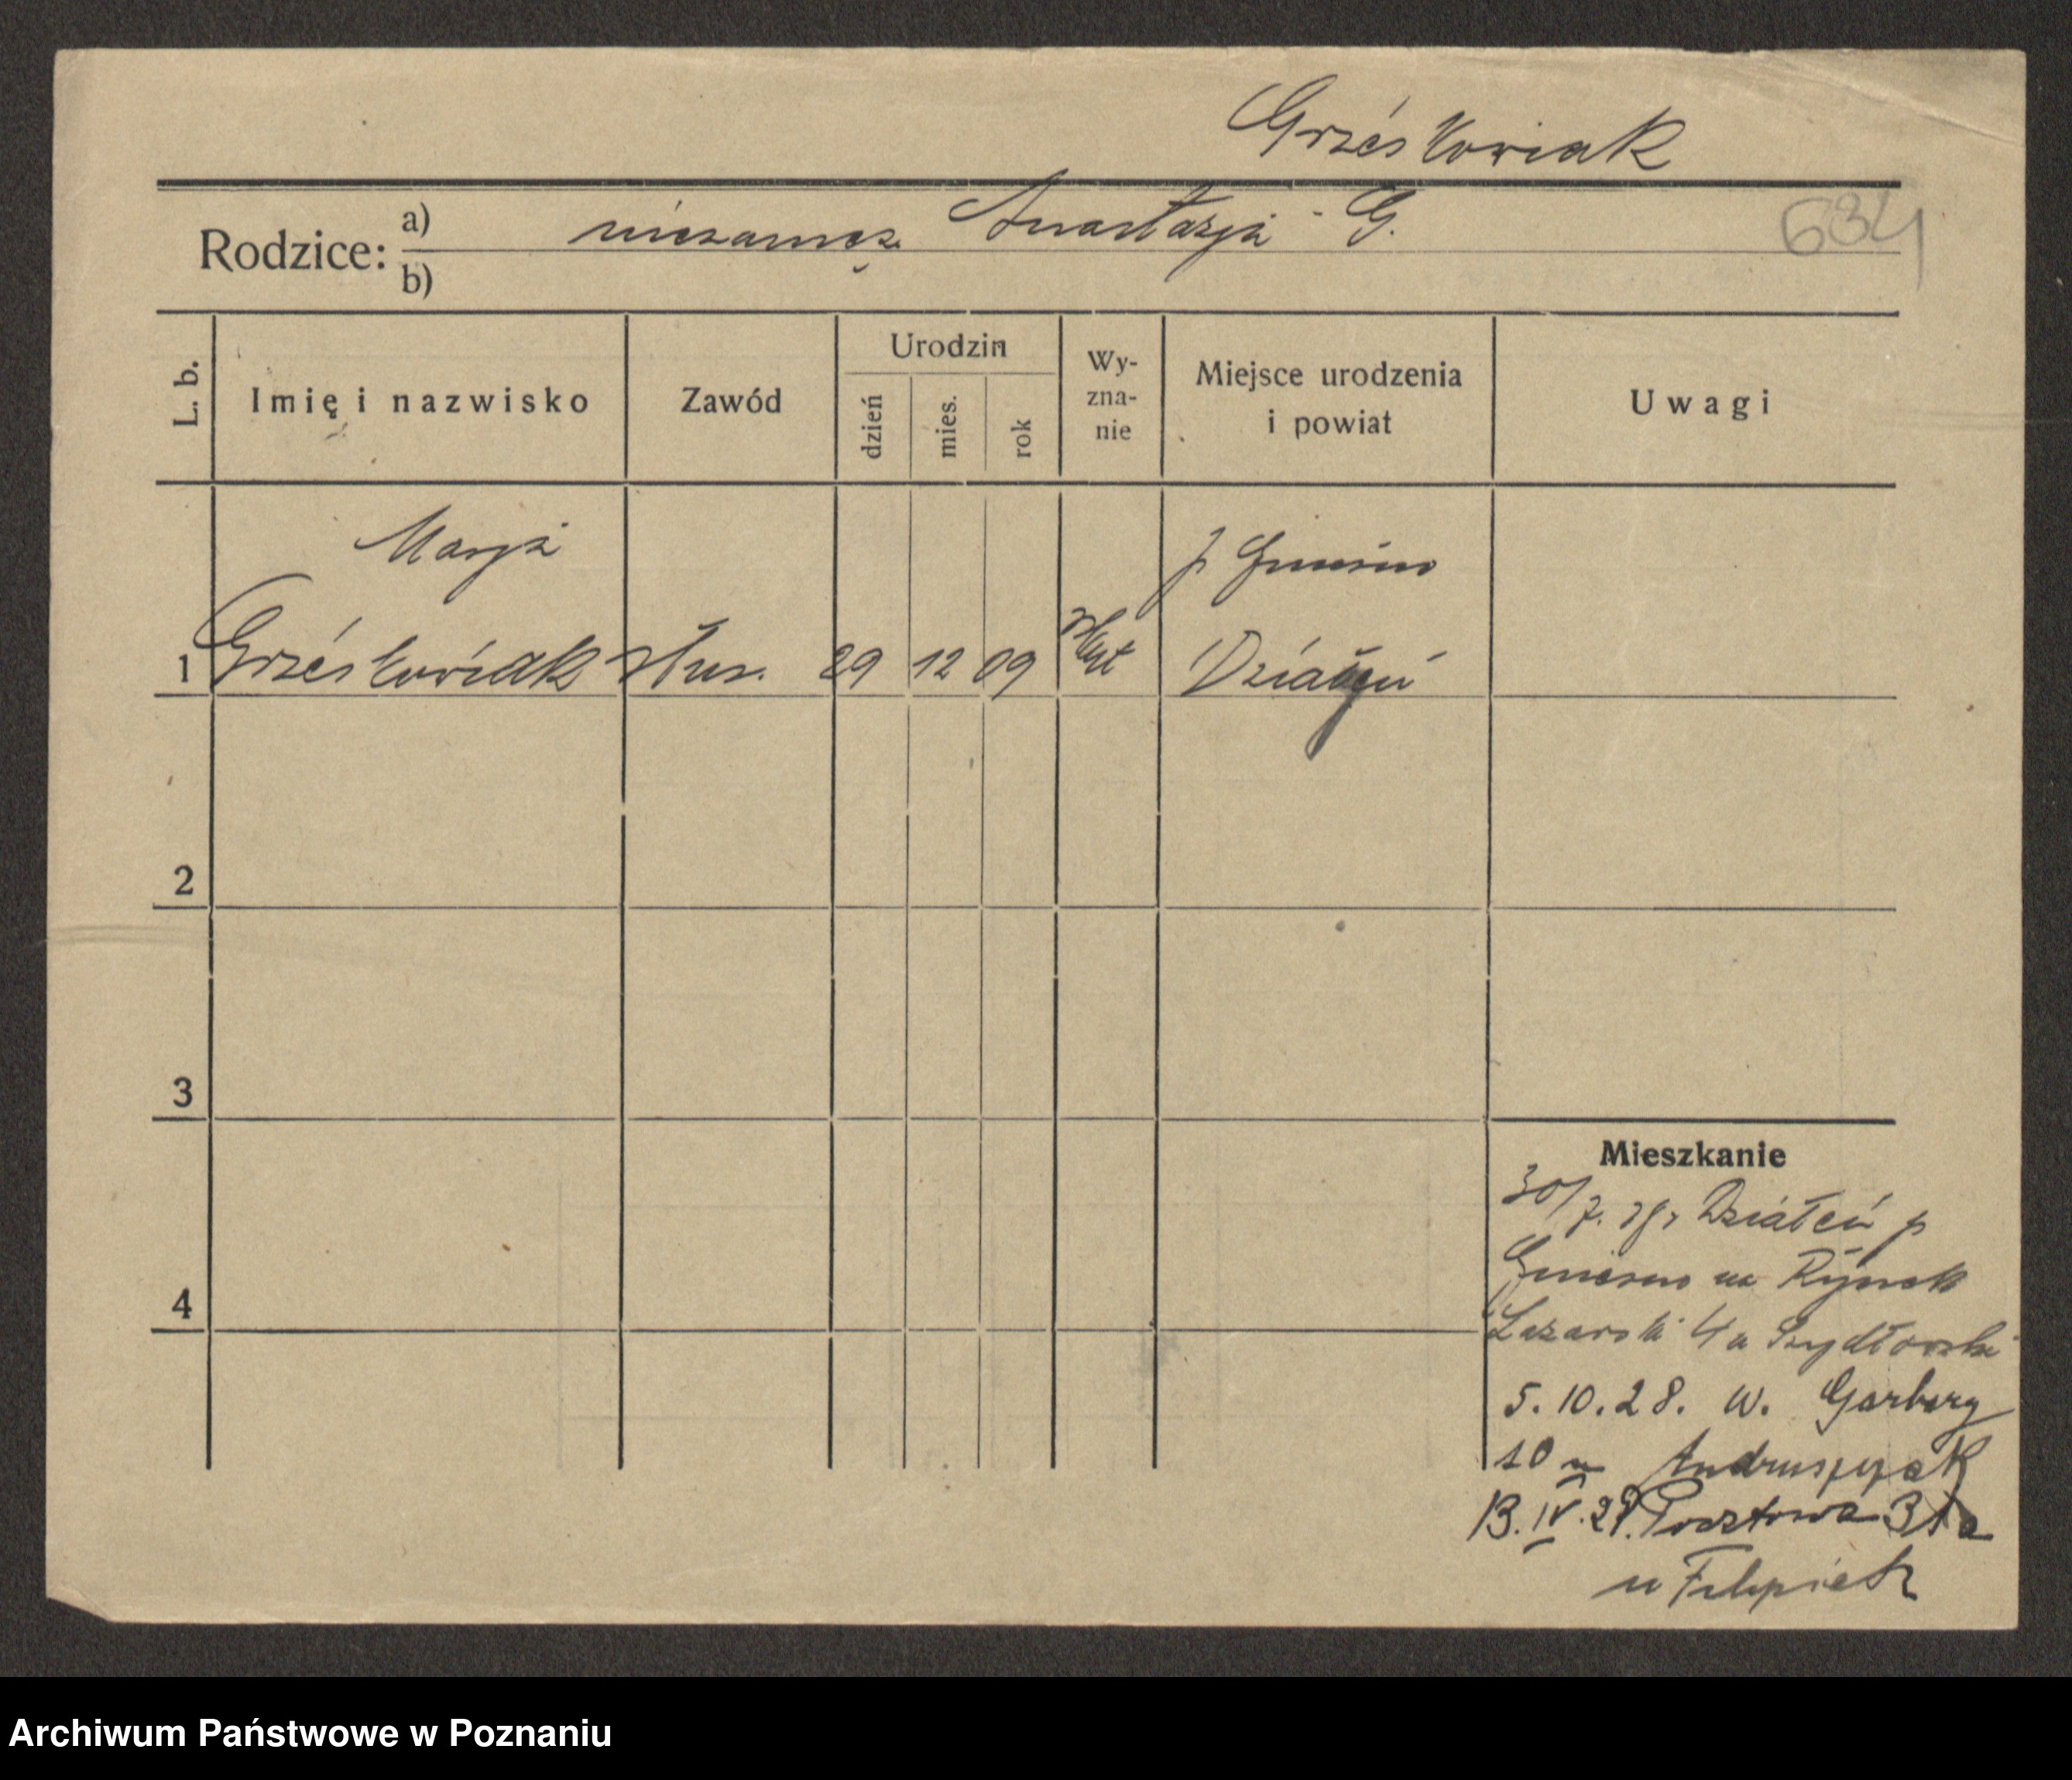 Grześkowiak
634
Rodzice: a) niezamęż. Anastazja G.
b)
L. b.
Imię i nazwisko
Zawód
Urodzin
dzień
mies.
rok
Wy-
zna-
nie
Miejsce urodzenia
i powiat
Uwagi
Marja
p Gniezno
1 Grześkowiak służ. 29 12 09 kat Działyń
2
3
4
Mieszkanie
30/7. Działeń p
Gniezno na Rynek
Łazarski 4a Szydłowski
5.10.28. W. Garbary
10 u Andruszczak
13.IV.29. Pocztowa 31a
u Filipiak
Archiwum Państwowe w Poznaniu